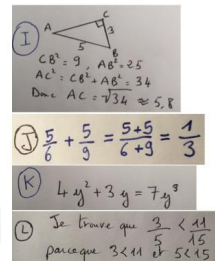 I
C
A
3
B
5
CB² = 9, AB² = 25
AC² = CB² + AB² = 34
Donc AC = √34 ≈ 5,8
J
5/6 + 5/9 = 5+5/6+9 = 1/3
K
4y² + 3y = 7y³
L
Je trouve que 3/5 < 11/15
parceque 3<11 et 5<15